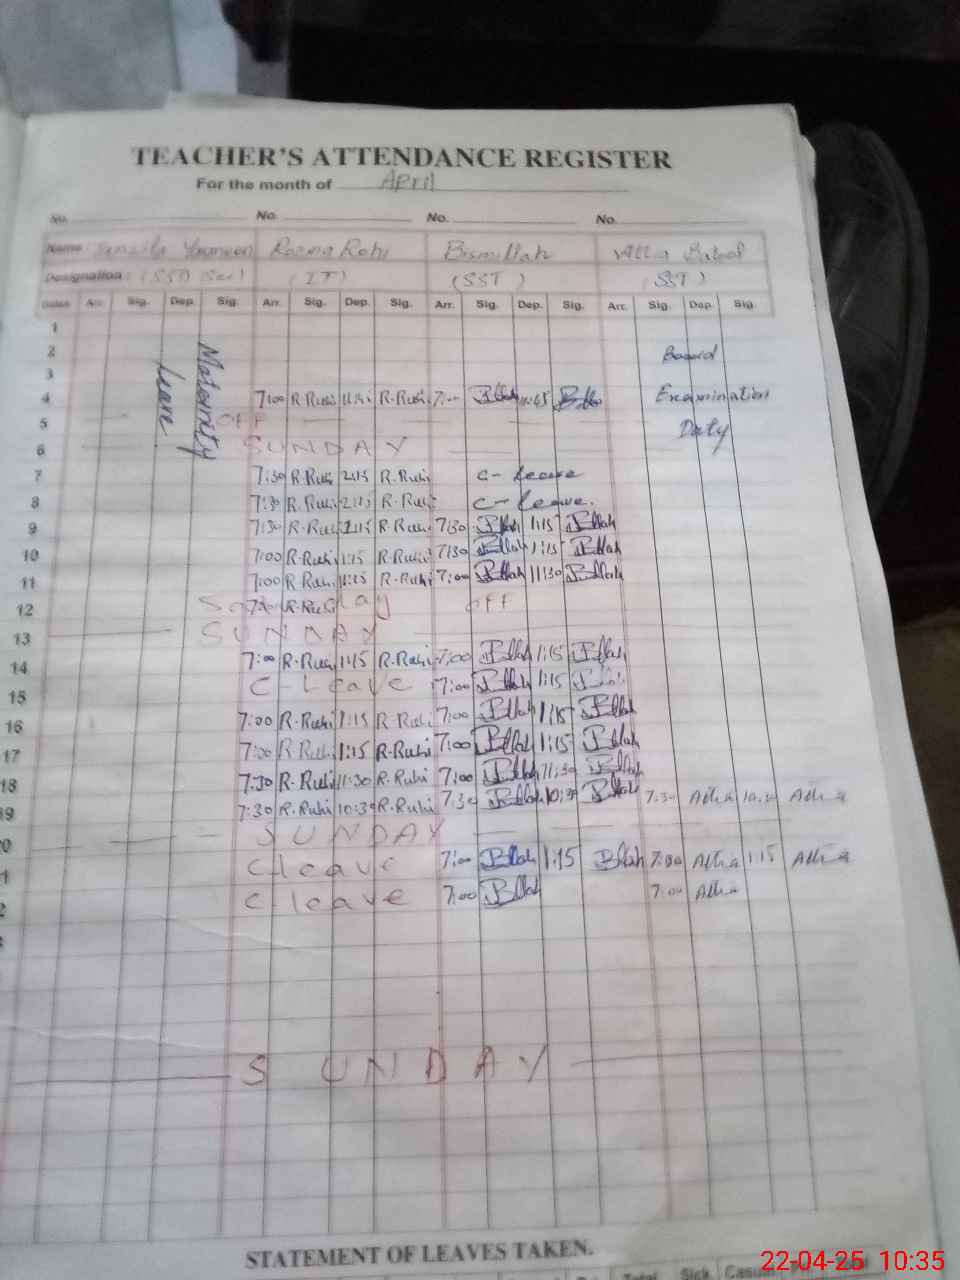 TEACHER'S ATTENDANCE REGISTER
For the month of April
No. No. No. No.
Name: Rozina Rohi Bismillah Attia Batool
Designation: (SST) (IT) (SST) (SST)
Dates Arr. Sig. Dep. Sig. Arr. Sig. Dep. Sig. Arr. Sig. Dep. Sig. Arr. Sig. Dep. Sig.
Maternity Leave
1
2 Board
3
4 7:00 R.Ruhi 11:15 R.Ruhi 7:00 Bllah 11:45 Bllah Examination
5 OFF Duty
6 SUNDAY
7 7:30 R.Ruhi 2:15 R.Ruhi C-Leave
8 7:30 R.Ruhi 2:15 R.Ruhi C-Leave.
9 7:30 R.Ruhi 1:15 R.Ruhi 7:30 Bllah 1:15 Bllah
10 7:00 R.Ruhi 1:15 R.Ruhi 7:30 Bllah 1:15 Bllah
11 7:00 R.Ruhi 11:15 R.Ruhi 7:00 Bllah 11:30 Bllah
12 OFF
13 SUNDAY
14 7:00 R.Ruhi 1:15 R.Ruhi 7:00 Bllah 1:15 Bllah
15 C-Leave 7:00 Bllah 1:15
16 7:00 R.Ruhi 1:15 R.Ruhi 7:00 Bllah 1:15 Bllah
17 7:00 R.Ruhi 1:15 R.Ruhi 7:00 Bllah 1:15 Bllah
18 7:30 R.Ruhi 11:30 R.Ruhi 7:00 Bllah 11:30 Bllah
9 7:30 R.Ruhi 10:30 R.Ruhi 7:30 Bllah 10:30 Bllah 7:30 Attia 10:30 Attia
0 SUNDAY
1 C leave 7:00 Bllah 1:15 Bllah 7:00 Attia 1:15 Attia
2 C-leave 7:00 Bllah 7:00 Attia
SUNDAY
STATEMENT OF LEAVES TAKEN.
Total Sick Casual
22-04-25 10:35